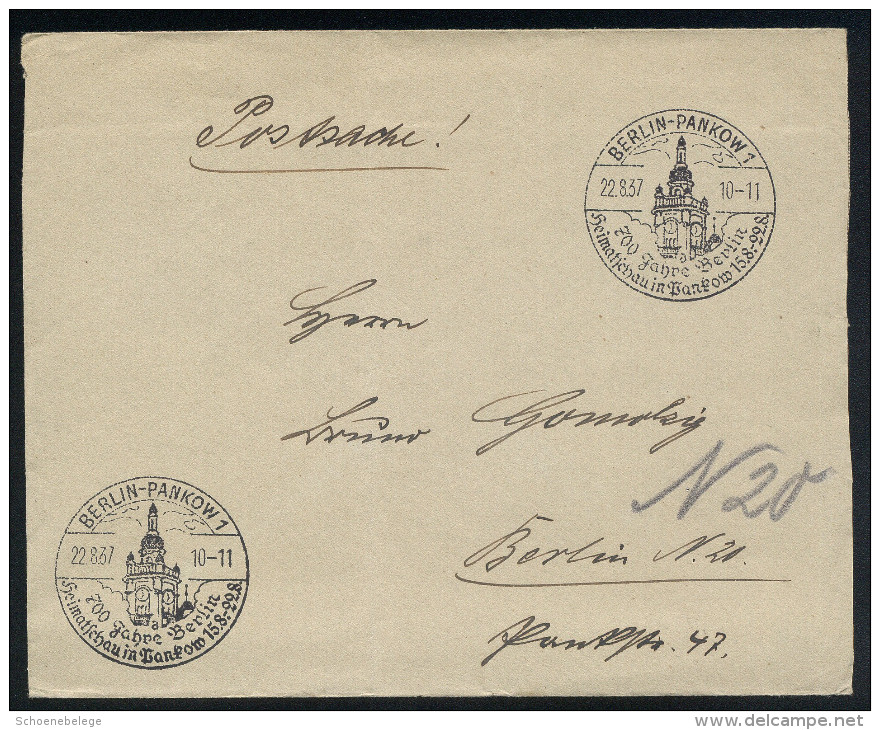 Postsache!
BERLIN-PANKOW 1
22.8.37 10-11
700 Jahre Berlin
Heimatschau in Pankow 15.8.-22.8.
Herrn
Bruno Gomolzig
N 20
Berlin N. 20.
Pankstr. 47.
BERLIN-PANKOW 1
22.8.37 10-11
a
700 Jahre Berlin
Heimatschau in Pankow 15.8.-22.8.
Schoenebelege
www.delcampe.net